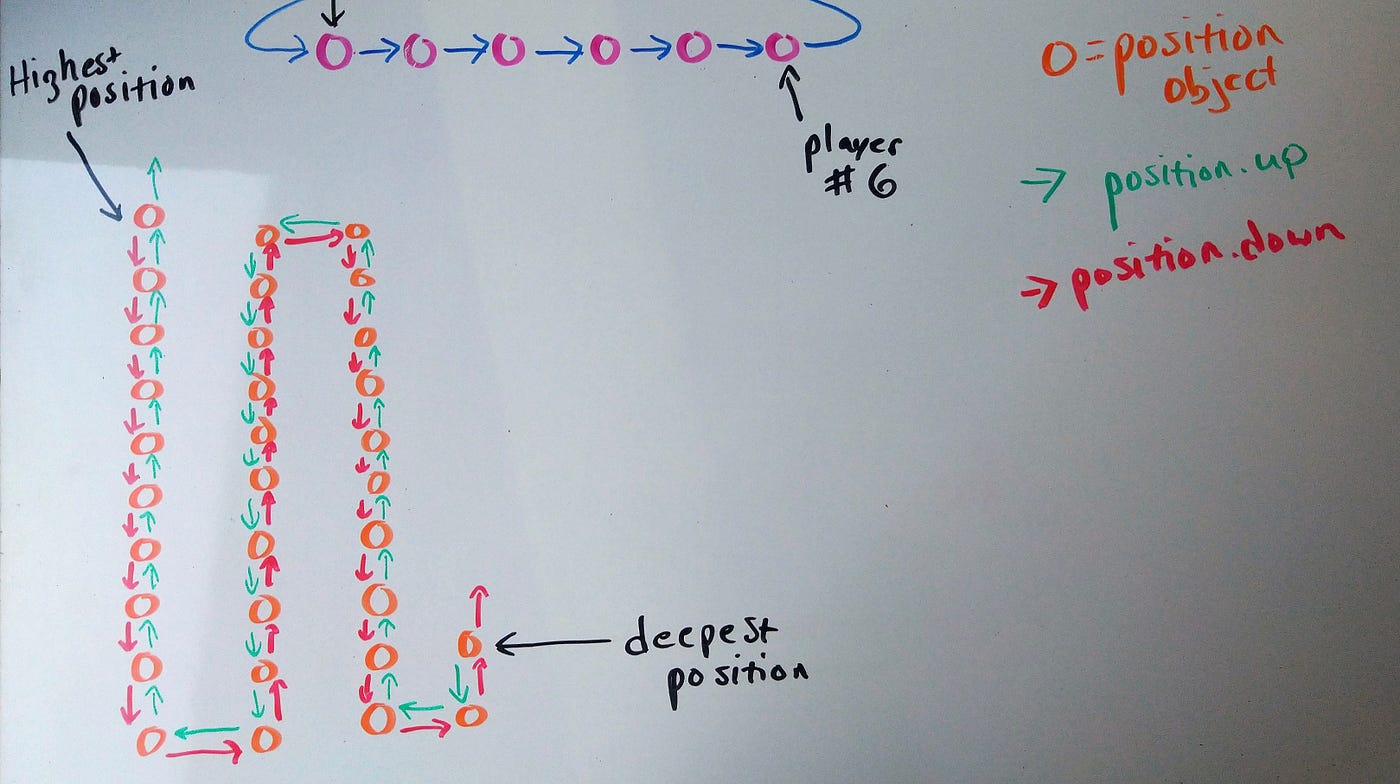 Highest
position
player
# 6
O = position
object
→ position.up
→ position.down
deepest
position